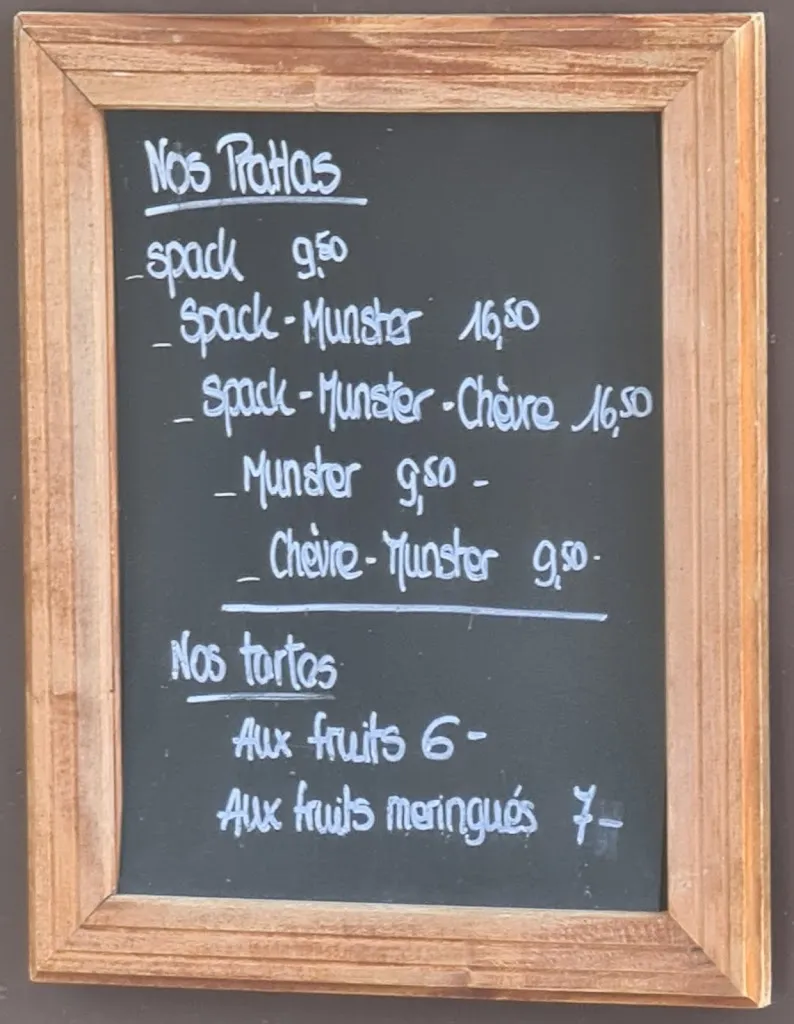 Nos Prattas
- spack 9,50
- Spack - Munster 16,50
- Spack - Munster - Chèvre 16,50
- Munster 9,50 -
- Chèvre - Munster 9,50 -
Nos tartes
Aux fruits 6 -
Aux fruits meringués 7 -